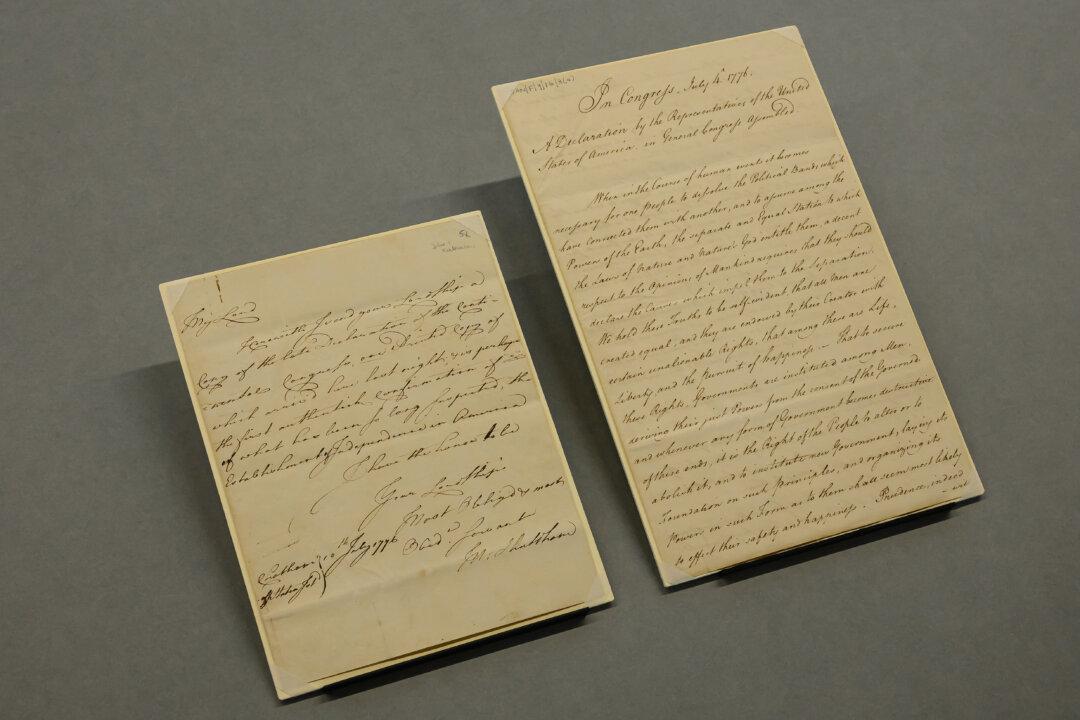 52
My Lord
Herewith I send your Lordship a
Copy of the late Declaration of the Conti-
nental Congress, one Printed Copy of
which arrived here last night, & is perhaps
the first authentick confirmation of
of what has been so long suspected, the
Establishment of Independence in America
I have the honor to be
Your Lordship's
Most Obliged & most
Obed.t Servant
10th July 1776
In Congress, July 4th 1776.
A Declaration by the Representatives of the United
States of America, in General Congress Assembled.
When in the Course of human events it becomes
necessary for one People to dissolve the Political Bands which
have connected them with another, and to assume among the
Powers of the Earth, the separate and Equal Station to which
the Laws of Nature and Nature's God entitle them, a decent
respect to the Opinions of Mankind requires that they should
declare the Causes which impel them to the Separation.
We hold these Truths to be self evident, that all Men are
created equal, and they are endowed by their Creator with
certain unalienable Rights, that among these are Life,
Liberty, and the Pursuit of happiness — That to secure
these Rights, Governments are instituted among Men,
deriving their just Powers from the consent of the Governed
and whenever any form of Government becomes destructive
of these ends, it is the Right of the People to alter or to
abolish it, and to institute new Government, laying its
Foundation on such Principles, and organizing its
Powers in such Form as to them shall seem most likely
to effect their safety and happiness. Prudence, indeed